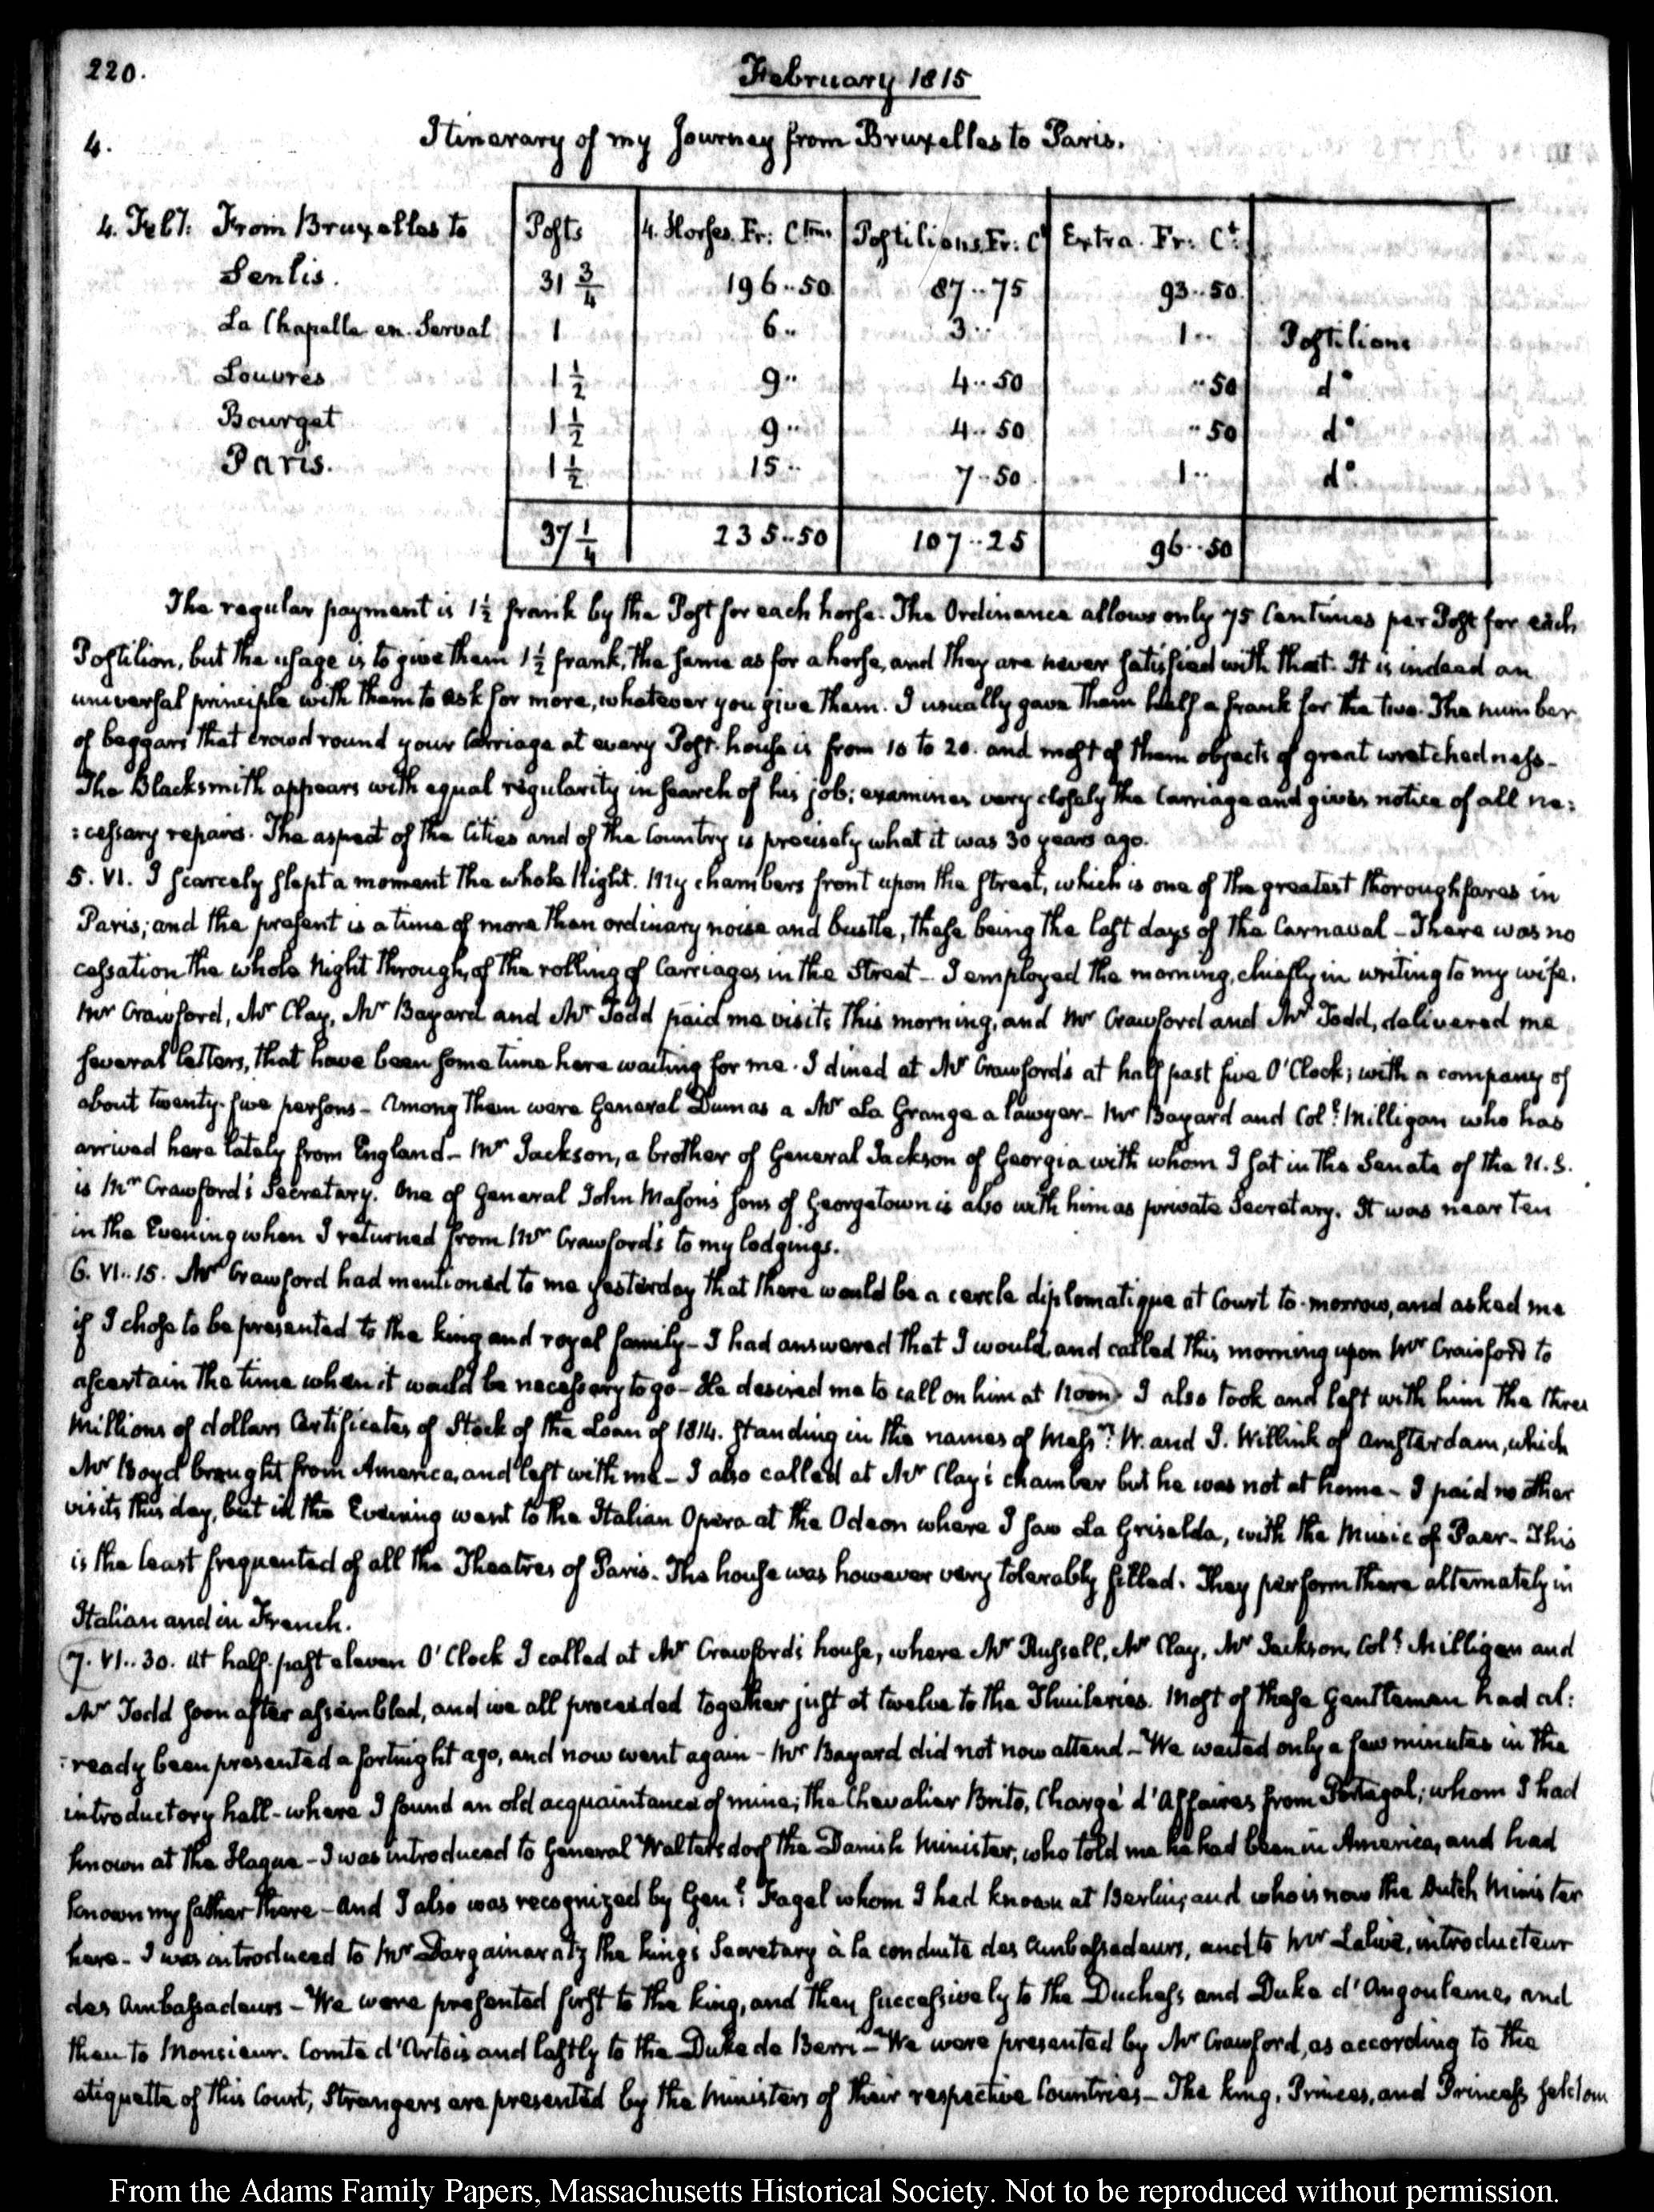 220.
February 1815
4.
Itinerary of my Journey from Bruxelles to Paris.
4. Feby: From Bruxelles to | Posts | 4. Horses. Fr: Ctmes | Postilions. Fr: Ct | Extra. Fr: Ct.
Senlis. | 31 3/4 | 196..50 | 87..75 | 93..50.
La Chapelle en Serval | 1 | 6.. | 3.. | 1.. | Postilions
Louvres | 1 1/2 | 9.. | 4..50 | ..50 | do
Bourget | 1 1/2 | 9.. | 4..50 | ..50 | do
Paris. | 1 1/2 | 15.. | 7..50 | 1.. | do.
37 1/4 | 235..50 | 107..25 | 96..50
The regular payment is 1½ frank by the Post for each horse. The Ordinance allows only 75 Centimes per Post for each
Postilion, but the usage is to give them 1½ frank, the same as for a horse, and they are never satisfied with that. It is indeed an
universal principle with them to ask for more, whatever you give them. I usually gave them half a frank for the two. The number
of beggars that crowd round your Carriage at every Post-house is from 10 to 20. and most of them objects of great wretchedness-
The Blacksmith appears with equal regularity in search of his job; examines very closely the Carriage and gives notice of all ne:
:cessary repairs. The aspect of the Cities and of the Country is precisely what it was 30 years ago.
5. VI. I scarcely slept a moment the whole Night. My chambers front upon the street, which is one of the greatest thoroughfares in
Paris; and the present is a time of more than ordinary noise and bustle, these being the last days of the Carnaval - There was no
cessation the whole Night through, of the rolling of Carriages in the Street - I employed the morning, chiefly in writing to my wife.
Mr Crawford, Mr Clay, Mr Bayard and Mr Todd paid me visits this morning, and Mr Crawford and Mr Todd, delivered me
several letters, that have been some time here waiting for me. I dined at Mr Crawford's at half past five O'Clock; with a company of
about twenty-five persons - Among them were General Dumas a Mr La Grange a lawyer - Mr Bayard and Coll: Milligan who has
arrived here lately from England - Mr Jackson, a brother of General Jackson of Georgia with whom I sat in the Senate of the U.S.
is Mr Crawford's Secretary. One of General John Mason's sons of Georgetown is also with him as private Secretary. It was near ten
in the Evening when I returned from Mr Crawford's to my lodgings.
6. VI..15. Mr Crawford had mentioned to me yesterday that there would be a cercle diplomatique at Court to-morrow, and asked me
if I chose to be presented to the king and royal family - I had answered that I would, and called this morning upon Mr Crawford to
ascertain the time when it would be necessary to go - He desired me to call on him at Noon. I also took and left with him the three
Millions of dollars Certificates of Stock of the Loan of 1814. standing in the names of Messrs: W. and J. Willink of Amsterdam, which
Mr Boyd brought from America, and left with me - I also called at Mr Clay's chamber but he was not at home - I paid no other
visits this day, but in the Evening went to the Italian Opera at the Odeon where I saw La Griselda, with the Music of Paer - This
is the least frequented of all the Theatres of Paris. The house was however very tolerably filled. They perform there alternately in
Italian and in French.
7. VI..30. At half-past eleven O'Clock I called at Mr Crawford's house, where Mr Russell, Mr Clay, Mr Jackson, Coll: Milligan and
Mr Todd soon after assembled, and we all proceeded together just at twelve to the Thuileries. Most of these Gentlemen had al:
:ready been presented a fortnight ago, and now went again - Mr Bayard did not now attend - We waited only a few minutes in the
introductory hall - where I found an old acquaintance of mine; the Chevalier Brito, Chargé d'Affaires from Portugal; whom I had
known at the Hague - I was introduced to General Waltersdorf the Danish Minister, who told me he had been in America, and had
known my father there - And I also was recognized by Genl: Fagel whom I had known at Berlin, and who is now the Dutch Minister
here - I was introduced to Mr Dargainaratz the king's Secretary à la conduite des Ambassadeurs, and to Mr Lalive, introducteur
des Ambassadeurs - We were presented first to the king, and then successively to the Duchess and Duke d'Angouleme, and
then to Monsieur. Comte d'Artois and lastly to the Duke de Berri - We were presented by Mr Crawford, as according to the
etiquette of this Court, Strangers are presented by the Ministers of their respective Countries - The king, Princes, and Princess seldom
From the Adams Family Papers, Massachusetts Historical Society. Not to be reproduced without permission.